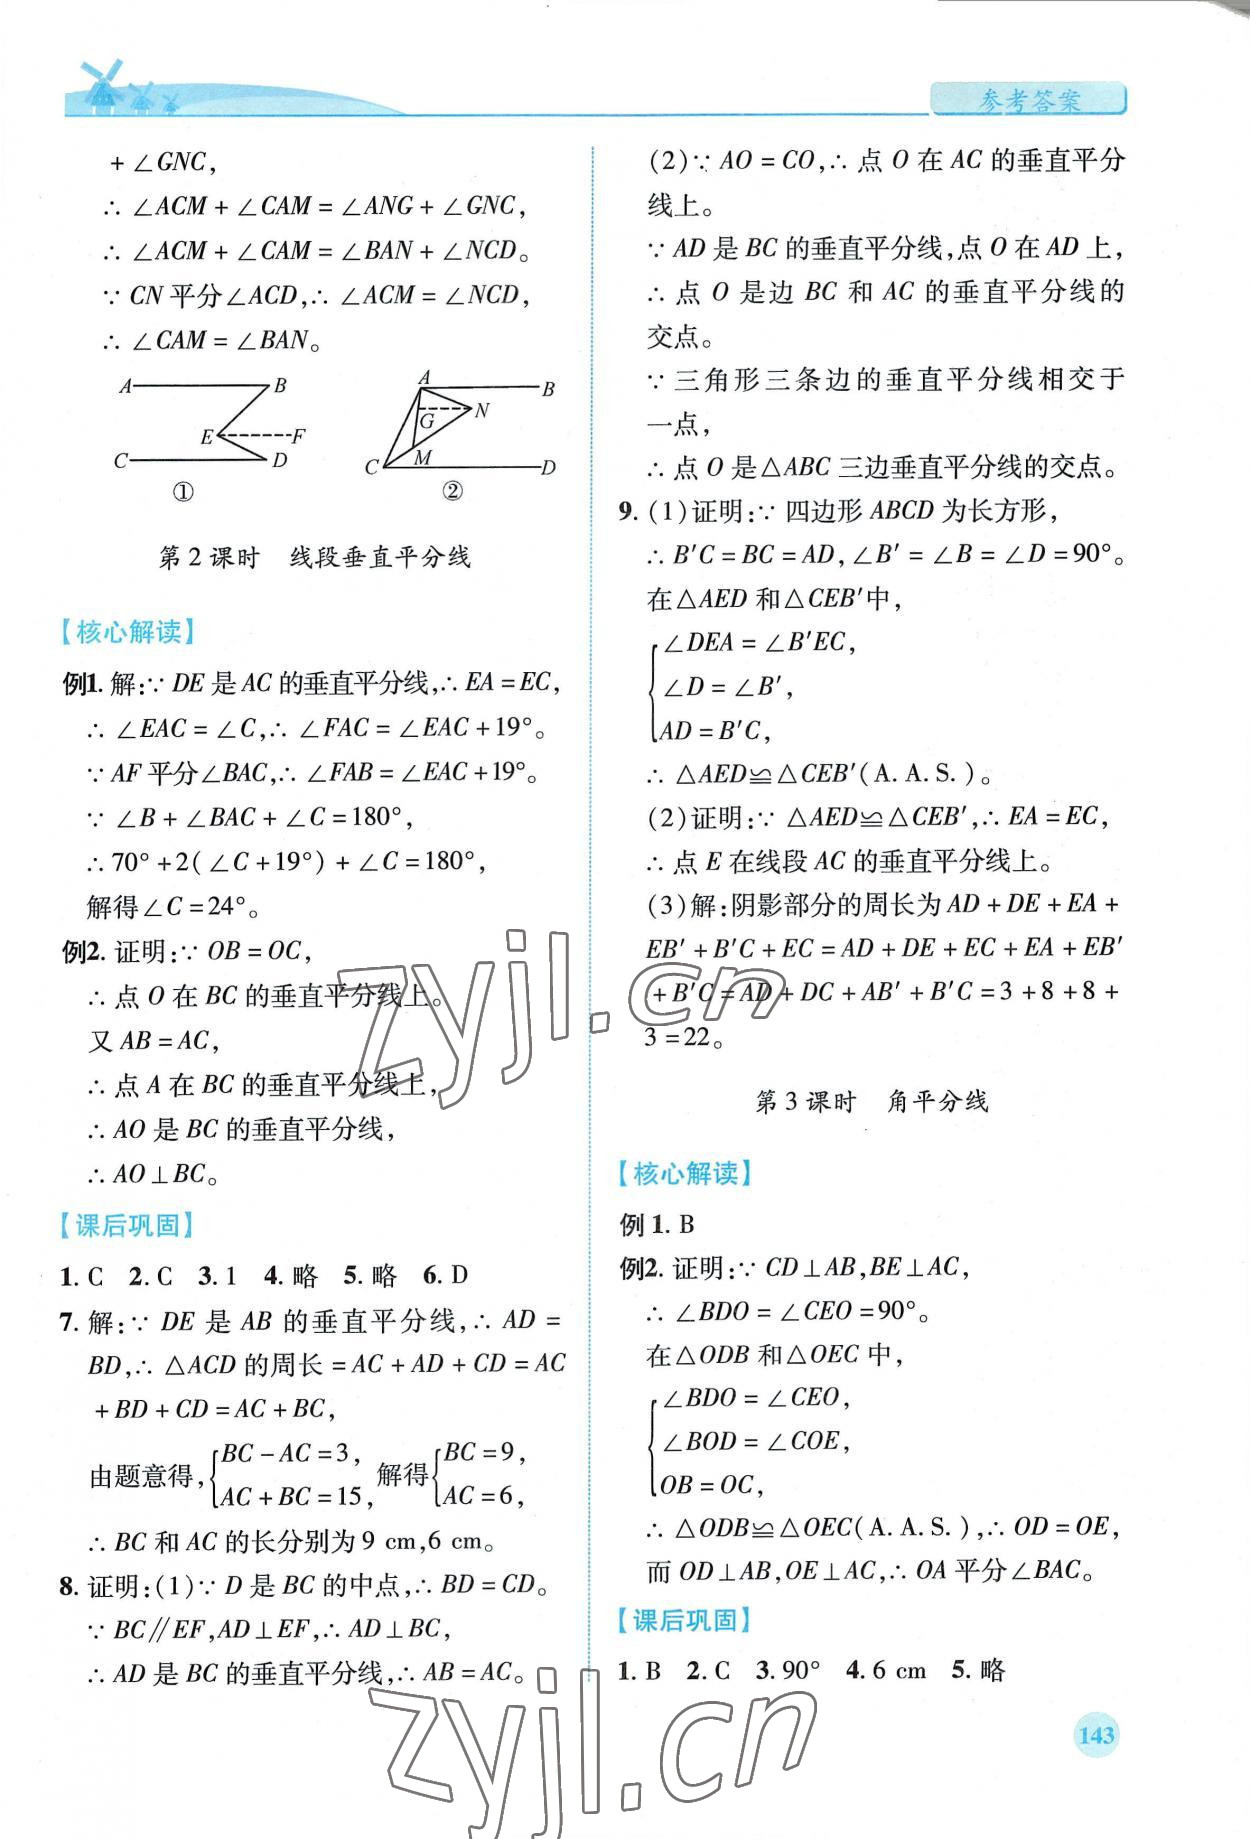 参考答案
+∠GNC,
∴ ∠ACM+∠CAM=∠ANG+∠GNC,
∴ ∠ACM+∠CAM=∠BAN+∠NCD。
∵ CN平分∠ACD,∴ ∠ACM=∠NCD,
∴ ∠CAM=∠BAN。
A B E F C D ①
A B G N C M D ②
第2课时 线段垂直平分线
【核心解读】
例1. 解:∵ DE是AC的垂直平分线,∴ EA=EC,
∴ ∠EAC=∠C,∴ ∠FAC=∠EAC+19°。
∵ AF平分∠BAC,∴ ∠FAB=∠EAC+19°。
∵ ∠B+∠BAC+∠C=180°,
∴ 70°+2(∠C+19°)+∠C=180°,
解得∠C=24°。
例2. 证明:∵ OB=OC,
∴ 点O在BC的垂直平分线上。
又AB=AC,
∴ 点A在BC的垂直平分线上,
∴ AO是BC的垂直平分线,
∴ AO⊥BC。
【课后巩固】
1. C 2. C 3. 1 4. 略 5. 略 6. D
7. 解:∵ DE是AB的垂直平分线,∴ AD=
BD,∴ △ACD的周长=AC+AD+CD=AC
+BD+CD=AC+BC,
由题意得,{BC-AC=3, AC+BC=15, 解得{BC=9, AC=6,
∴ BC和AC的长分别为9 cm,6 cm。
8. 证明:(1)∵ D是BC的中点,∴ BD=CD。
∵ BC∥EF,AD⊥EF,∴ AD⊥BC,
∴ AD是BC的垂直平分线,∴ AB=AC。
(2)∵ AO=CO,∴ 点O在AC的垂直平分
线上。
∵ AD是BC的垂直平分线,点O在AD上,
∴ 点O是边BC和AC的垂直平分线的
交点。
∵三角形三条边的垂直平分线相交于
一点,
∴ 点O是△ABC三边垂直平分线的交点。
9. (1)证明:∵ 四边形ABCD为长方形,
∴ B′C=BC=AD,∠B′=∠B=∠D=90°。
在△AED和△CEB′中,
∠DEA=∠B′EC,
∠D=∠B′,
AD=B′C,
∴ △AED≌△CEB′(A. A. S. )。
(2)证明:∵ △AED≌△CEB′,∴ EA=EC,
∴ 点E在线段AC的垂直平分线上。
(3)解:阴影部分的周长为AD+DE+EA+
EB′+B′C+EC=AD+DE+EC+EA+EB′
+B′C=AD+DC+AB′+B′C=3+8+8+
3=22。
第3课时 角平分线
【核心解读】
例1. B
例2. 证明:∵ CD⊥AB,BE⊥AC,
∴ ∠BDO=∠CEO=90°。
在△ODB和△OEC中,
∠BDO=∠CEO,
∠BOD=∠COE,
OB=OC,
∴ △ODB≌△OEC(A. A. S. ),∴ OD=OE,
而OD⊥AB,OE⊥AC,∴ OA平分∠BAC。
【课后巩固】
1. B 2. C 3. 90° 4. 6 cm 5. 略
143
zyjl.cn
zyjl.cn